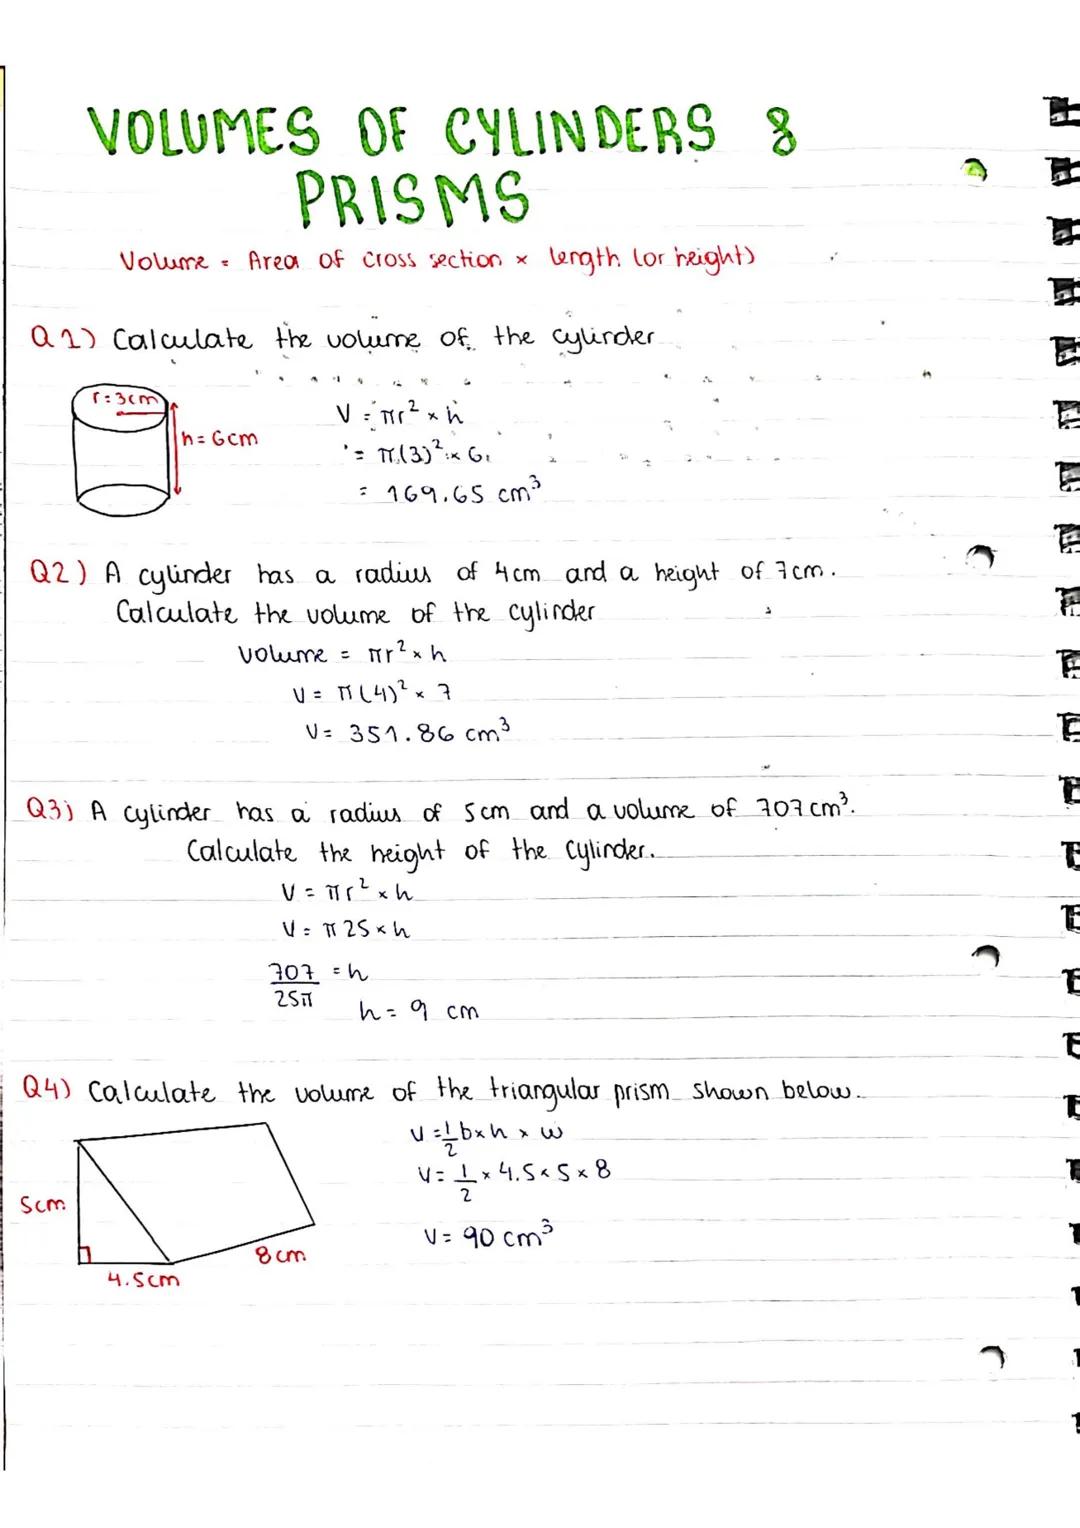 VOLUMES OF CYLINDERS &
PRISMS
Volume = Area of cross section × length (or height)
Q1) Calculate the volume of the cylinder
r=3cm
h=6cm
V = πr² × h
= π(3)² × 6
= 169.65 cm³
Q2) A cylinder has a radius of 4cm and a height of 7cm.
Calculate the volume of the cylinder
Volume = πr² × h
V = π(4)² × 7
V = 351.86 cm³
Q3) A cylinder has a radius of 5cm and a volume of 707cm³.
Calculate the height of the cylinder.
V = πr² × h
V = π25 × h
707/25π = h
h = 9 cm
Q4) Calculate the volume of the triangular prism shown below.
V = 1/2 b×h × w
V = 1/2 × 4.5 × 5 × 8
V = 90 cm³
5cm
8cm
4.5cm